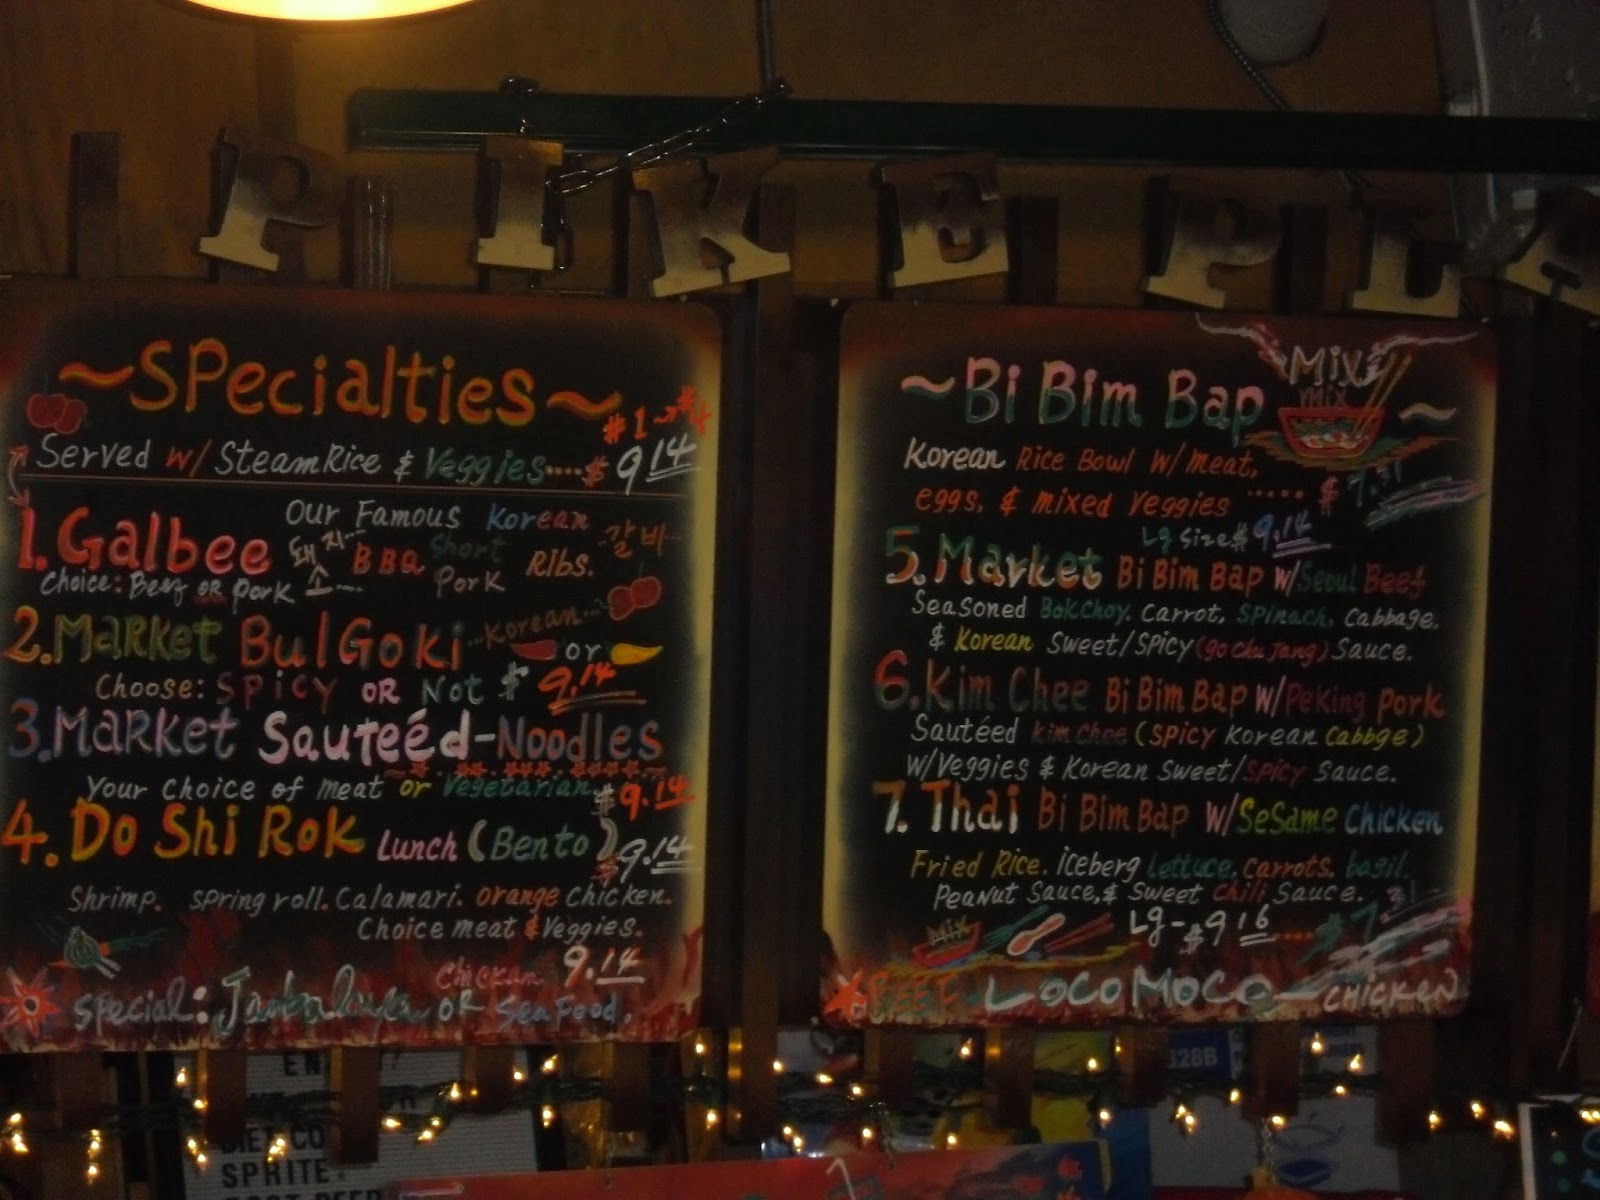 PIKE PLA
~SPecialties~
#1~#4
Served w/ Steam Rice & Veggies....$9.14
1.Galbee Our Famous Korean
돼지... BBQ Short Ribs. 갈비...
Choice: Beef OR Pork 소.... Pork
2.Market BulGoki ...Korean...
or
Choose: SPicy OR Not $9.14
3.Market Sauteéd-Noodles
Your choice of meat or Vegetarian $9.14
4.Do Shi Rok Lunch (Bento) $9.14
Shrimp. spring roll. Calamari. orange Chicken.
Choice meat & Veggies.
Chicken 9.14
special: Jambalaya OR SeaFood.
~Bi Bim Bap~
Mix
mix
Korean Rice Bowl w/ meat,
eggs, & mixed Veggies ..... $
Lg Size $9.14
5.Market Bi Bim Bap w/Seoul Beef
Seasoned BokChoy. Carrot, Spinach, Cabbage,
& Korean Sweet/SPicy (go Chu Jang) Sauce.
6.Kim Chee Bi Bim Bap w/Peking Pork
Sautéed Kim Chee (Spicy Korean Cabbge)
w/Veggies & Korean Sweet/Spicy Sauce.
7. Thai Bi Bim Bap w/SeSame Chicken
Fried Rice. iceberg lettuce, carrots, basil.
Peanut Sauce, & Sweet Chili Sauce.
Mix
Lg-$9.16....$7
BEEF - LOCO MOCO - CHICKEN
328B
DIET CO
SPRITE